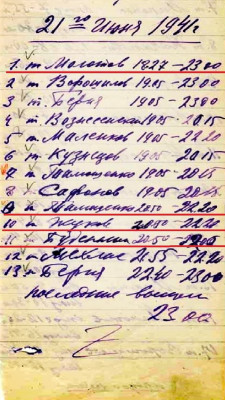 21го Июня 1941г
1. т Молотов 1827–2300
2 т Ворошилов 1905–2300
3 т. Берия 1905–2300
4 т Вознесенский 1905–2015
5 т Маленков 1905–2220
6 т Кузнецов 1905–2015
7 т Тимошенко 1905–2015
8 т Сафонов 1905–2015
9 т Тимошенко 2050–2220
10 т Жуков 2050–2220
11 т Буденный 2050–2200
12 т Мехлис 2155–2220
13 т Берия 2240–2300
последние вышли
23 00